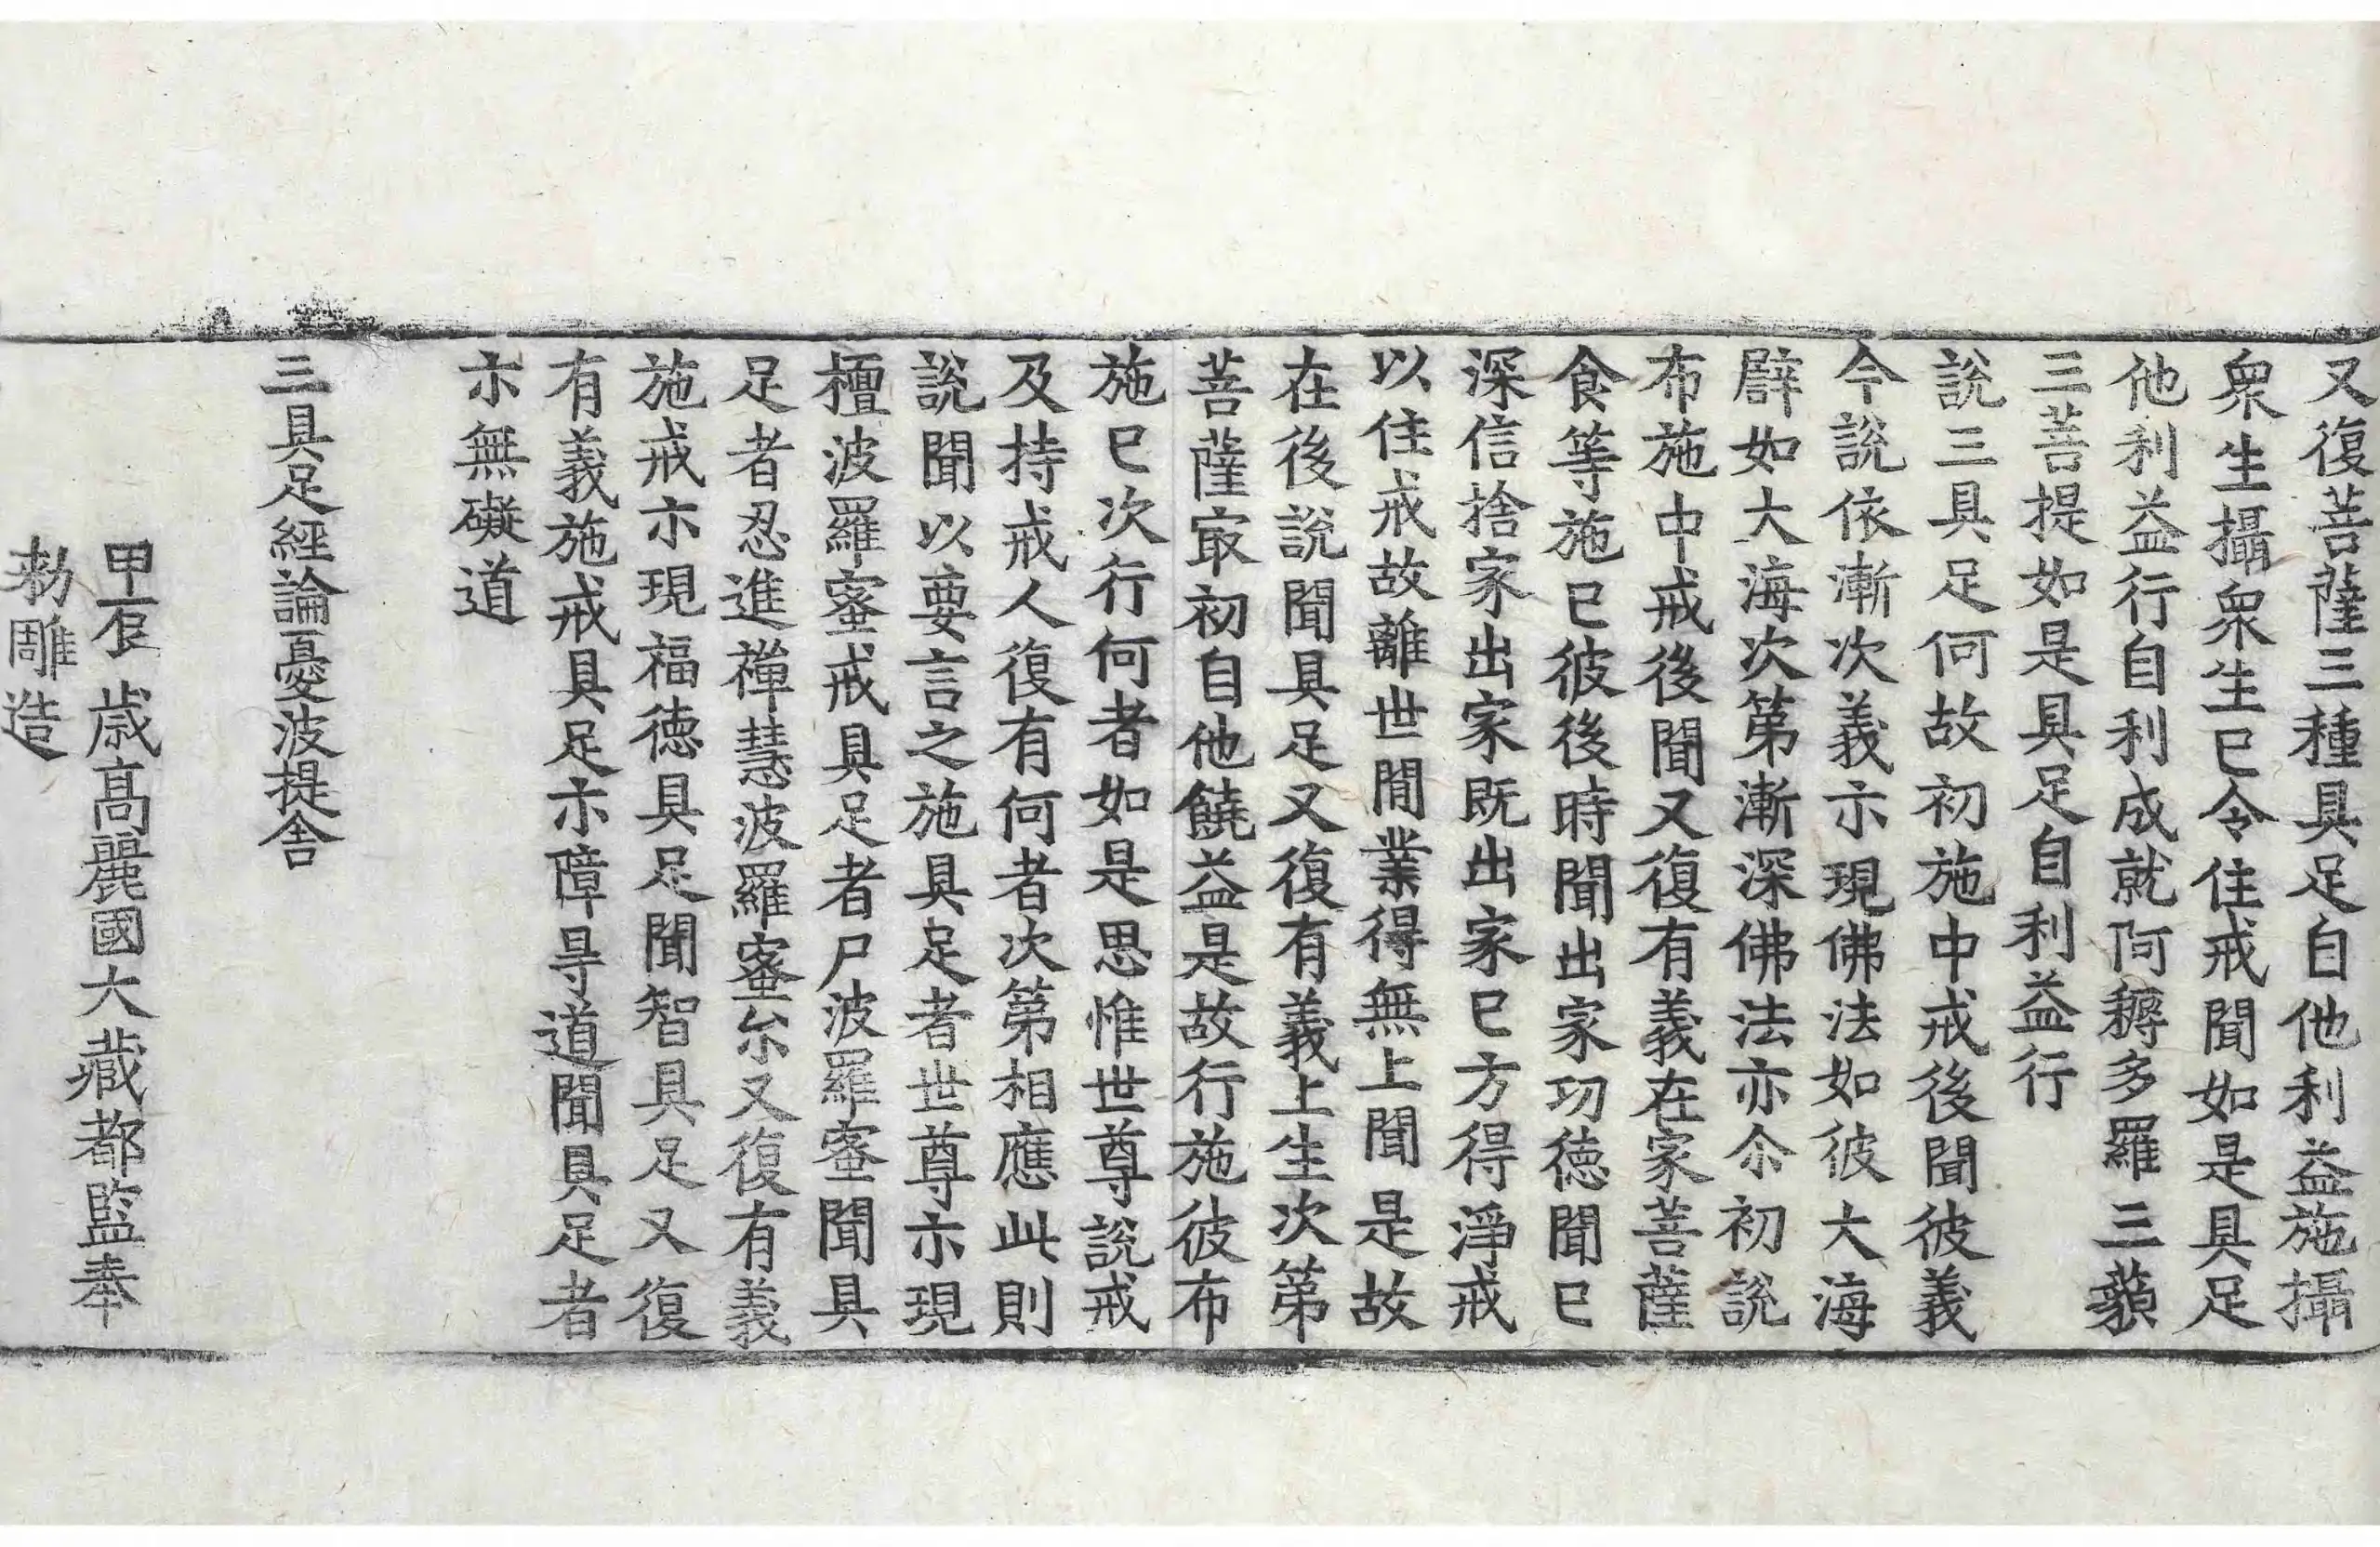 又復菩薩三種具足自他利益施攝
衆生攝衆生已令住戒聞如是具足
他利益行自利成就阿耨多羅三藐
三菩提如是具足自利益行
說三具足何故初施中戒後聞彼義
今說依漸次義示現佛法如彼大海
辟如大海次第漸深佛法亦尒初說
布施中戒後聞又復有義在家菩薩
食等施已彼後時聞出家功德聞已
深信捨家出家既出家已方得淨戒
以住戒故離世間業得無上聞是故
在後說聞具足又復有義上生次第
菩薩㝡初自他饒益是故行施彼布
施已次行何者如是思惟世尊說戒
及持戒人復有何者次第相應此則
說聞以要言之施具足者世尊示現
檀波羅蜜戒具足者尸波羅蜜聞具
足者忍進禪慧波羅蜜尒又復有義
施戒示現福德具足聞智具足又復
有義施戒具足示障㝵道聞具足者
示無礙道
三具足經論憂波提舍
甲辰歲高麗國大藏都監奉
勑雕造